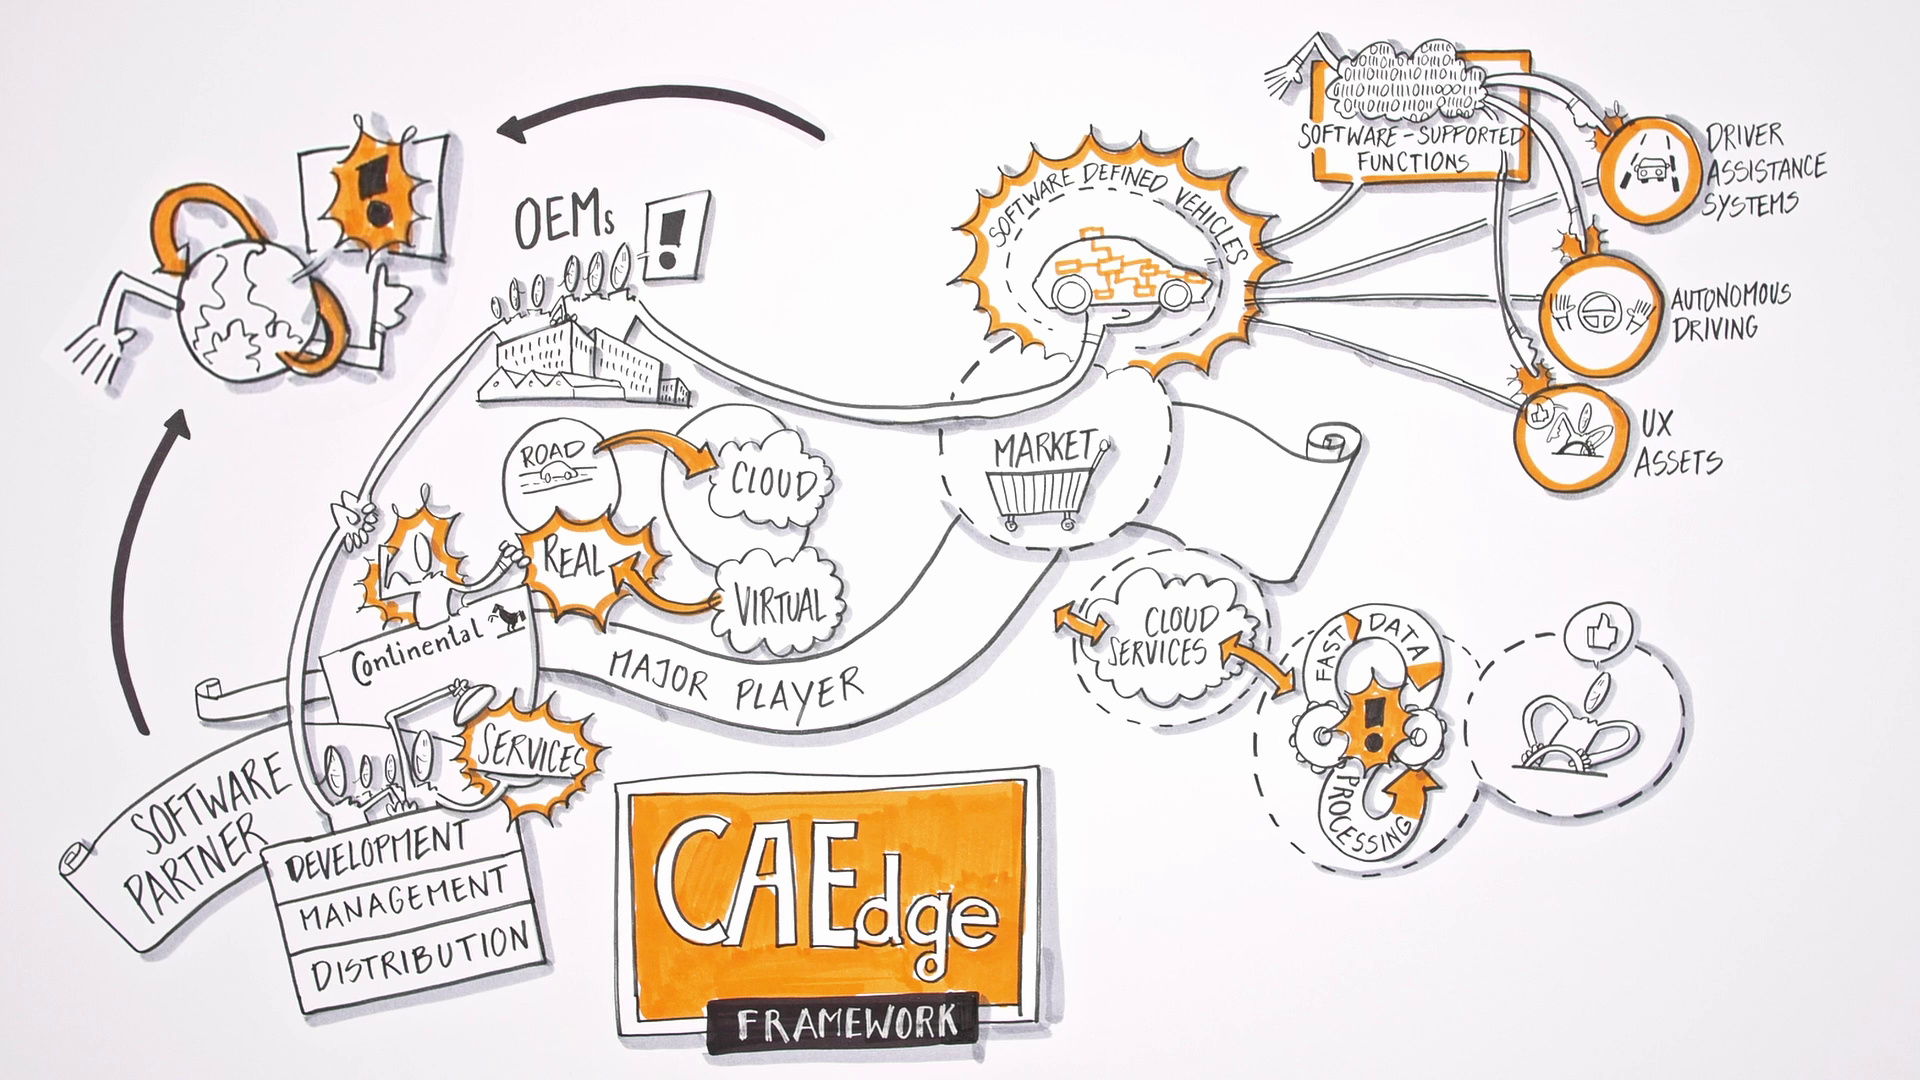 SOFTWARE-SUPPORTED
FUNCTIONS
DRIVER
ASSISTANCE
SYSTEMS
SOFTWARE DEFINED VEHICLES
OEMs
AUTONOMOUS
DRIVING
UX
ASSETS
MARKET
ROAD
CLOUD
REAL
VIRTUAL
Continental
MAJOR PLAYER
CLOUD
SERVICES
FAST DATA
PROCESSING
SERVICES
SOFTWARE
PARTNER
DEVELOPMENT
MANAGEMENT
DISTRIBUTION
CAEdge
FRAMEWORK